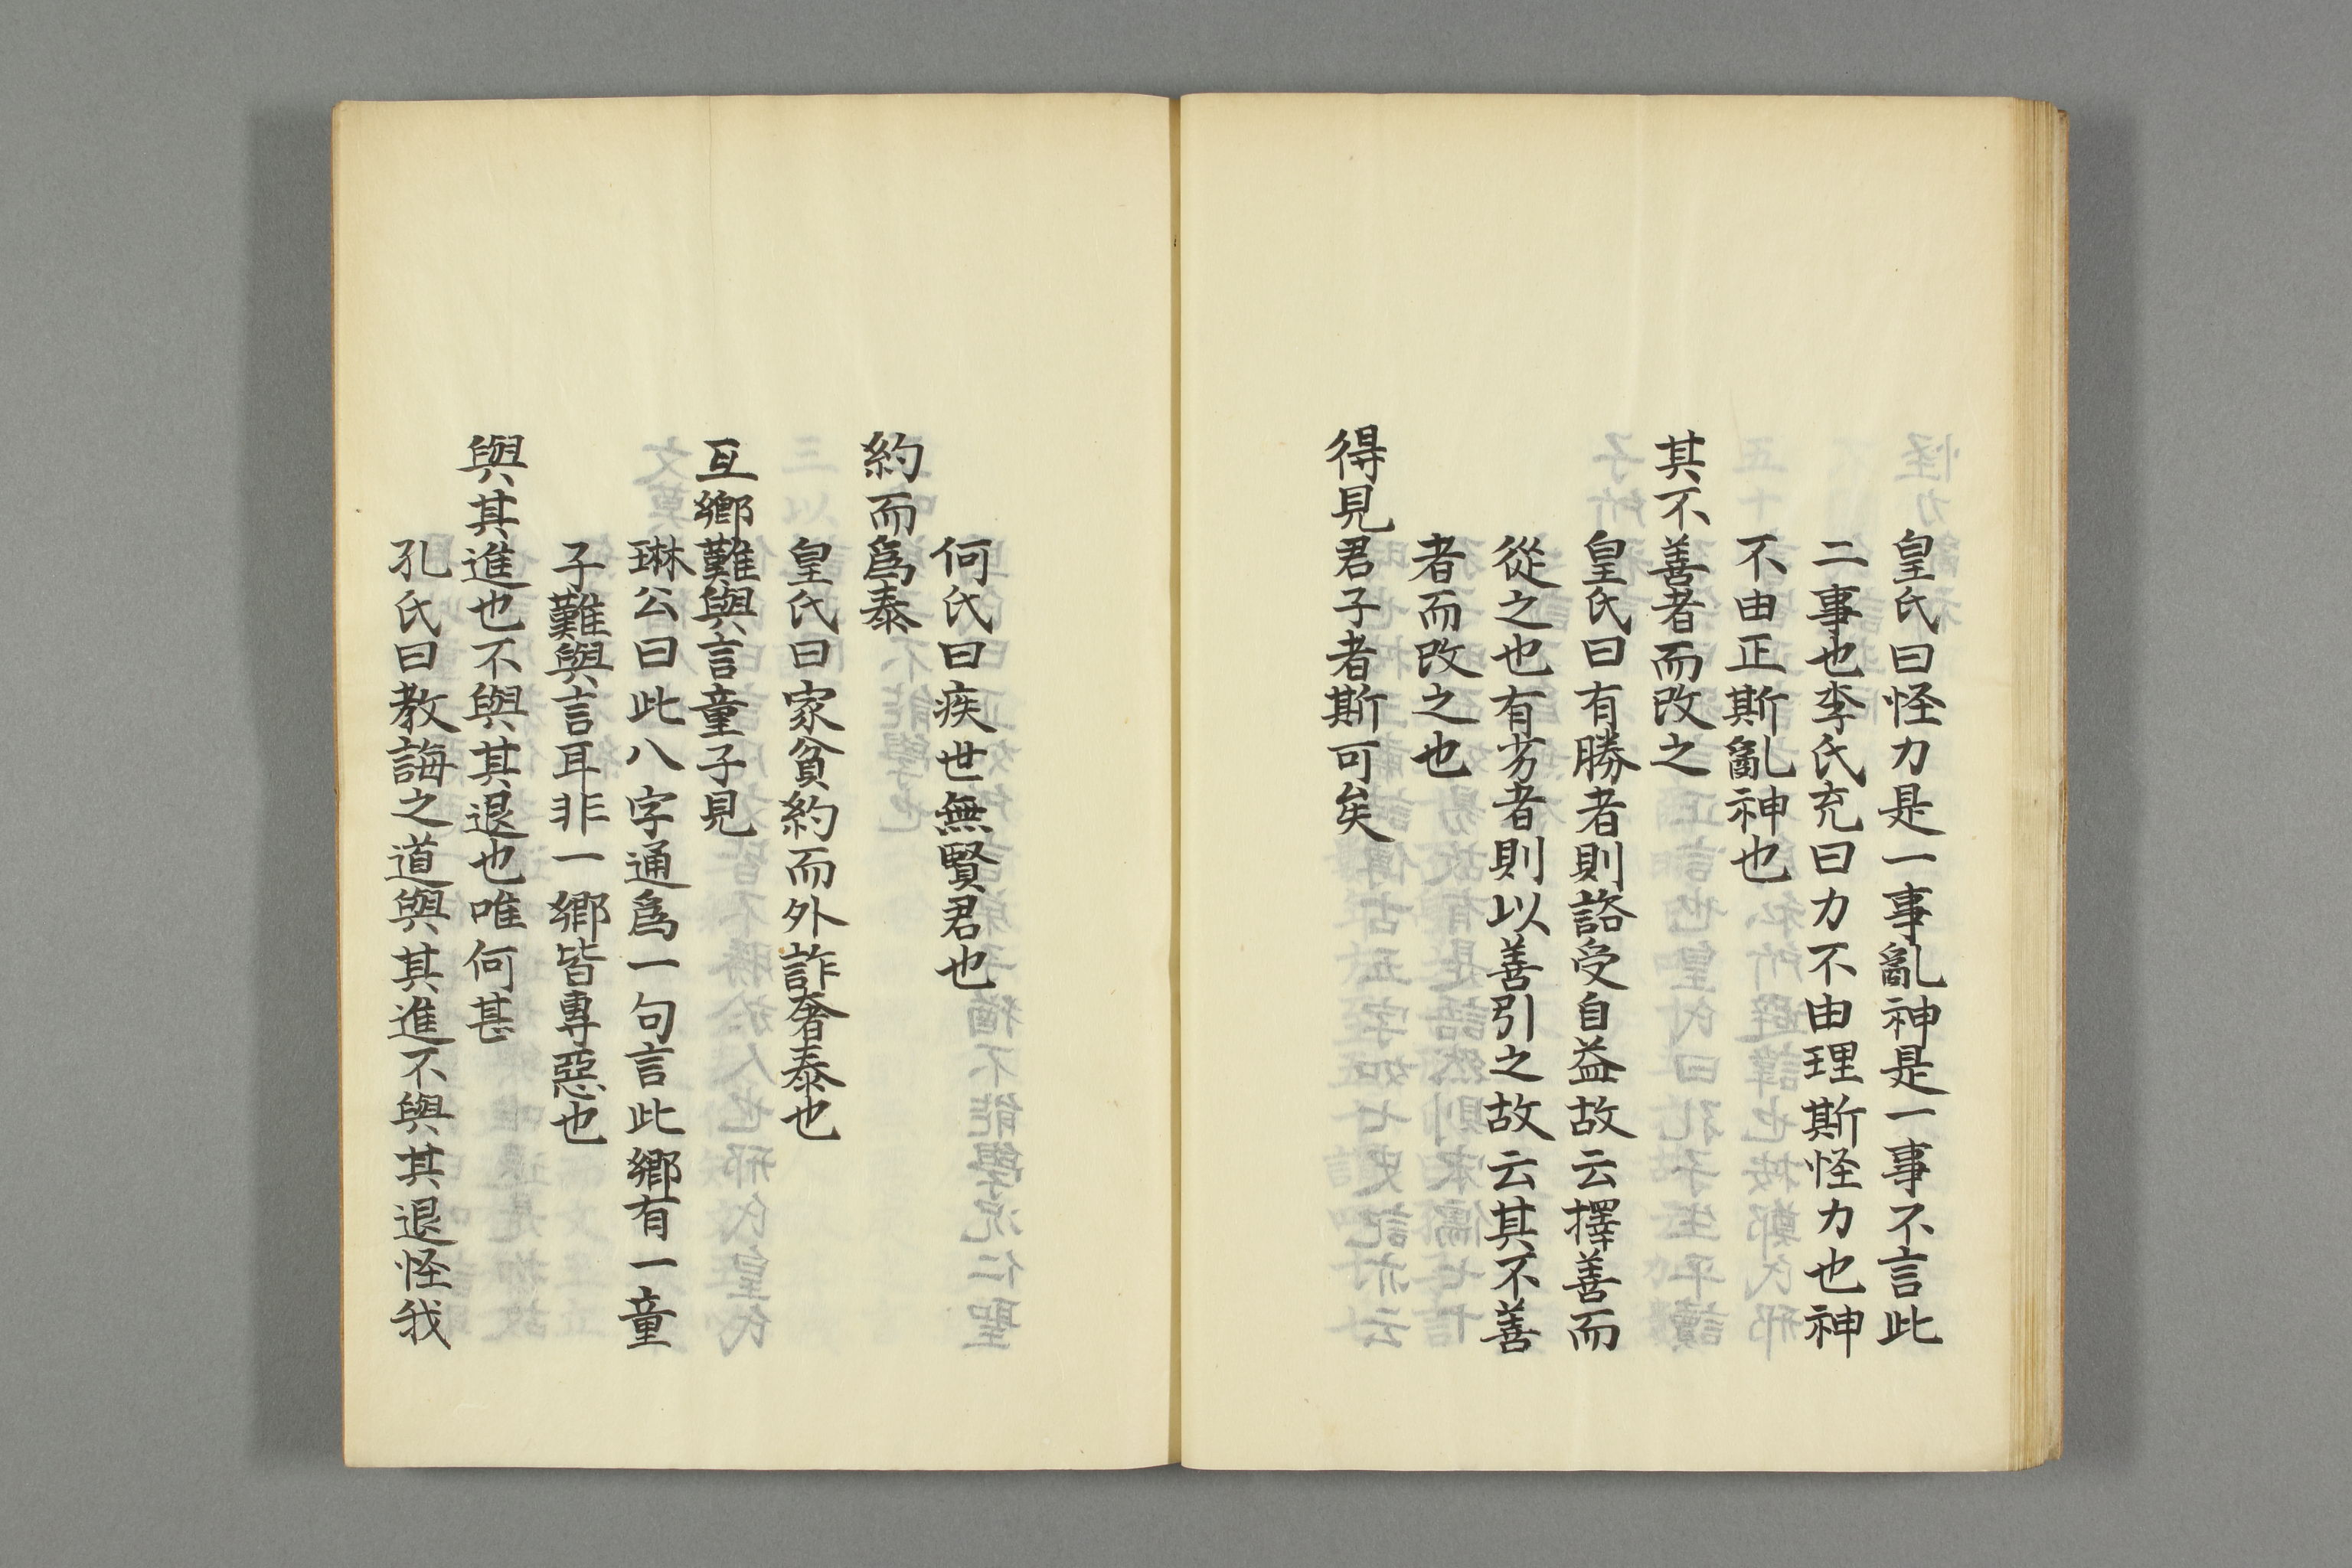 皇氏曰怪力是一事亂神是一事不言此
二事也李氏充曰力不由理斯怪力也神
不由正斯亂神也
其不善者而改之
皇氏曰有勝者則諮受自益故云擇善而
從之也有劣者則以善引之故云其不善
者而改之也
得見君子者斯可矣
何氏曰疾世無賢君也
約而爲泰
皇氏曰家貧約而外詐奢泰也
互鄉難與言童子見
琳公曰此八字通爲一句言此鄉有一童
子難與言耳非一鄉皆專惡也
與其進也不與其退也唯何甚
孔氏曰教誨之道與其進不與其退怪我